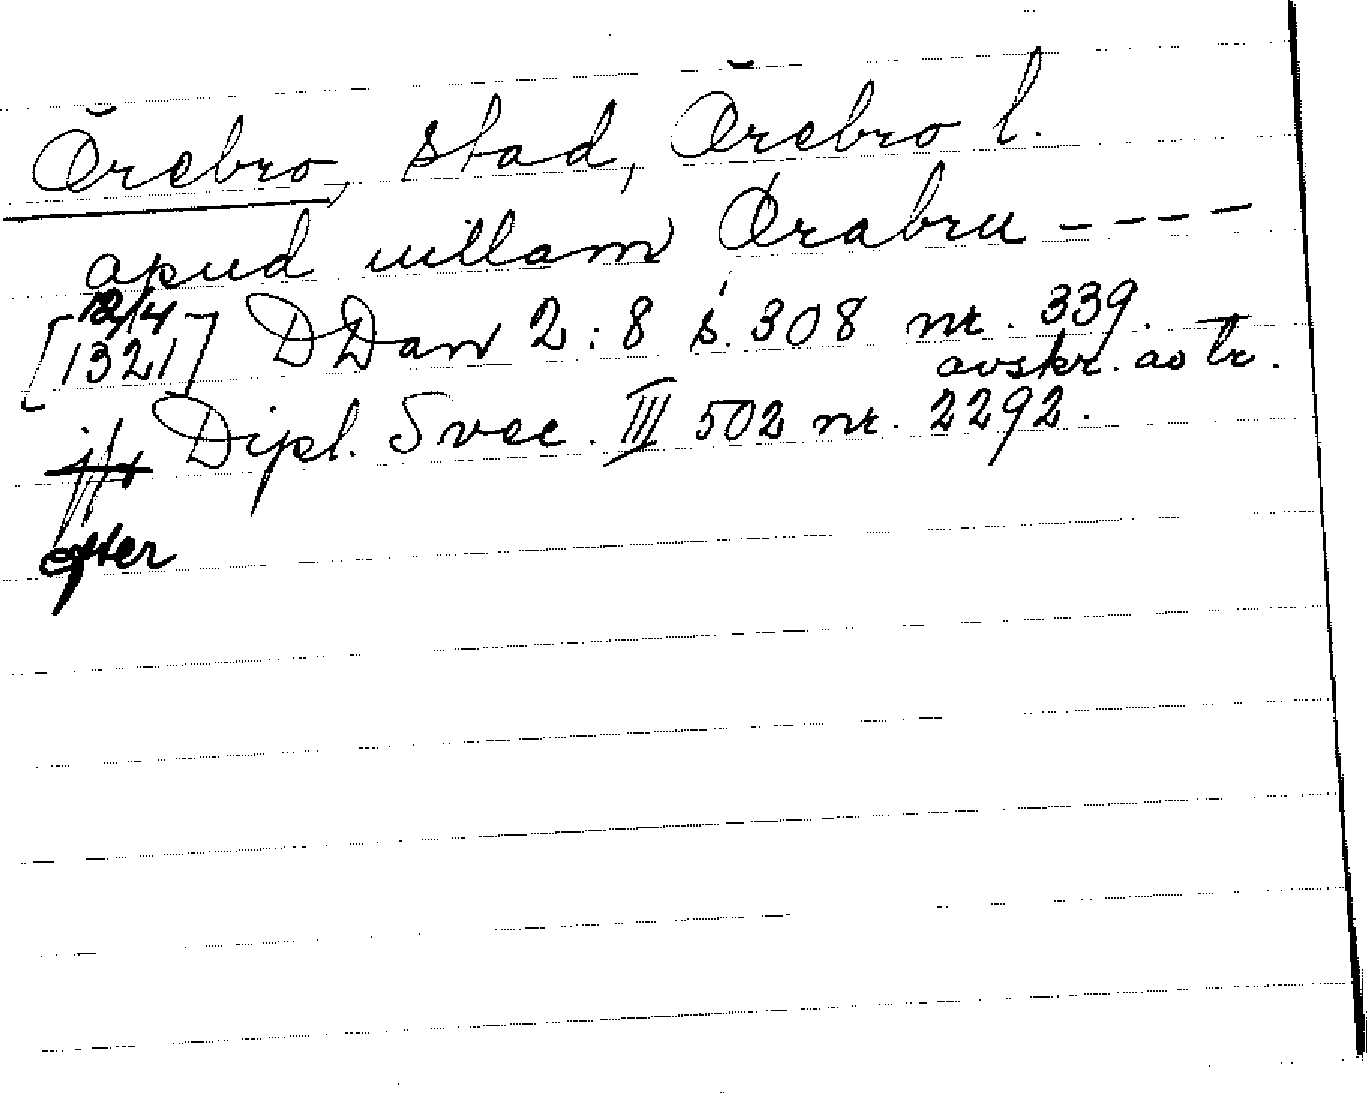 Örebro, stad, Örebro l.
apud uillam Ørabru ----
[12/4 1321] DDan 2:8 s. 308 nr. 339.
avskr. av tr.
jfr Dipl. Svec. III 502 nr. 2292.
efter